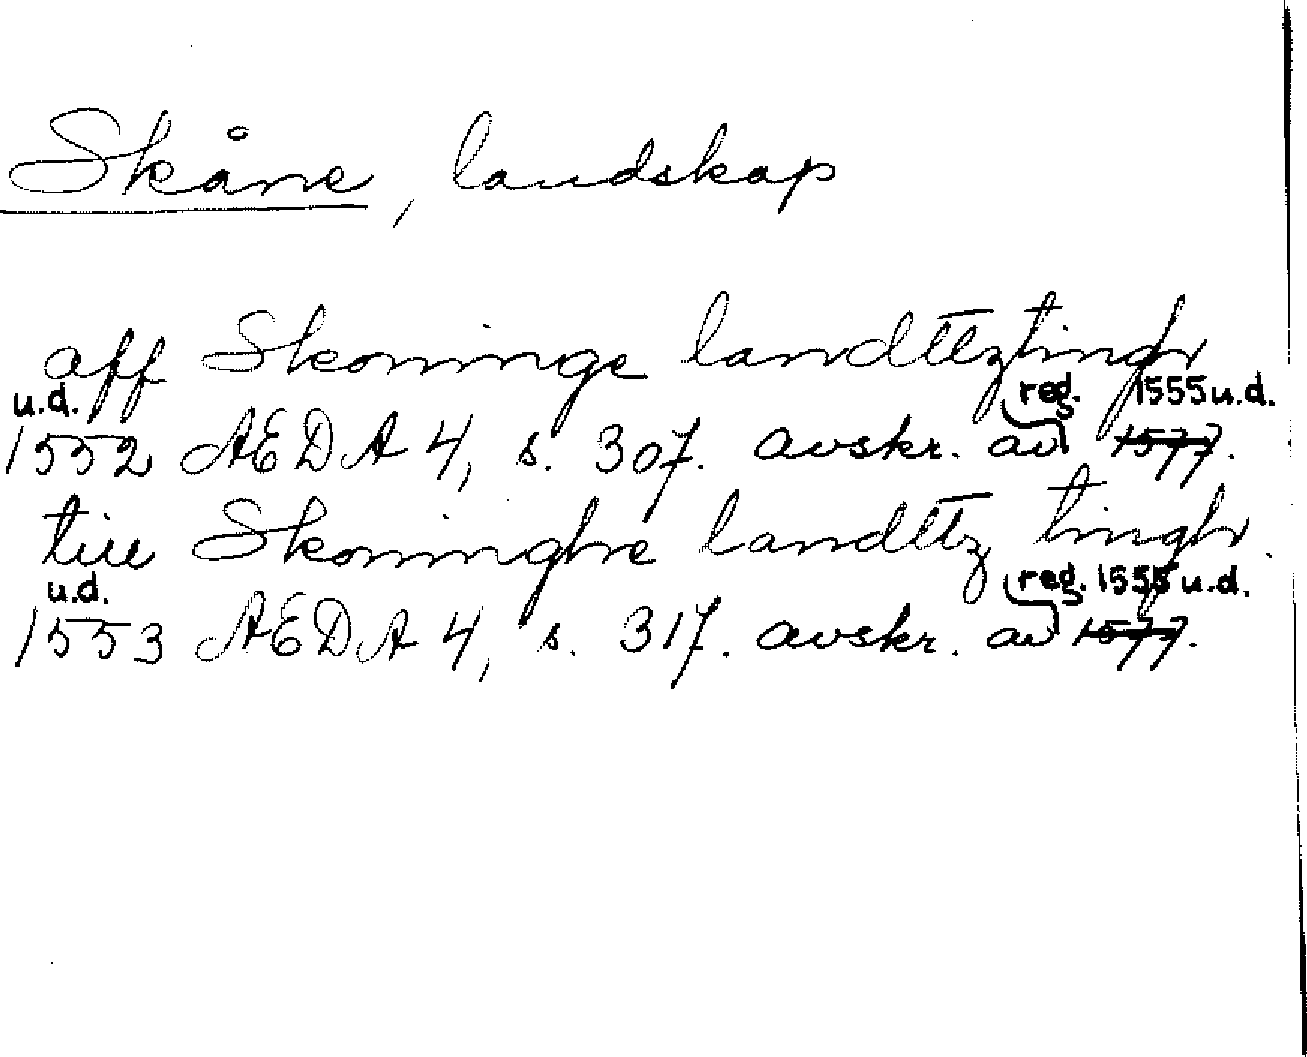 Skåne, landskap
aff Skoninge landttz tingh
u.d. reg. 1555 u.d.
1552 AEDA 4, s. 307. avskr. av 1577.
till Skoninghe landttz tingh.
u.d. reg. 1555 u.d.
1553 AEDA 4, s. 317. avskr. av 1577.